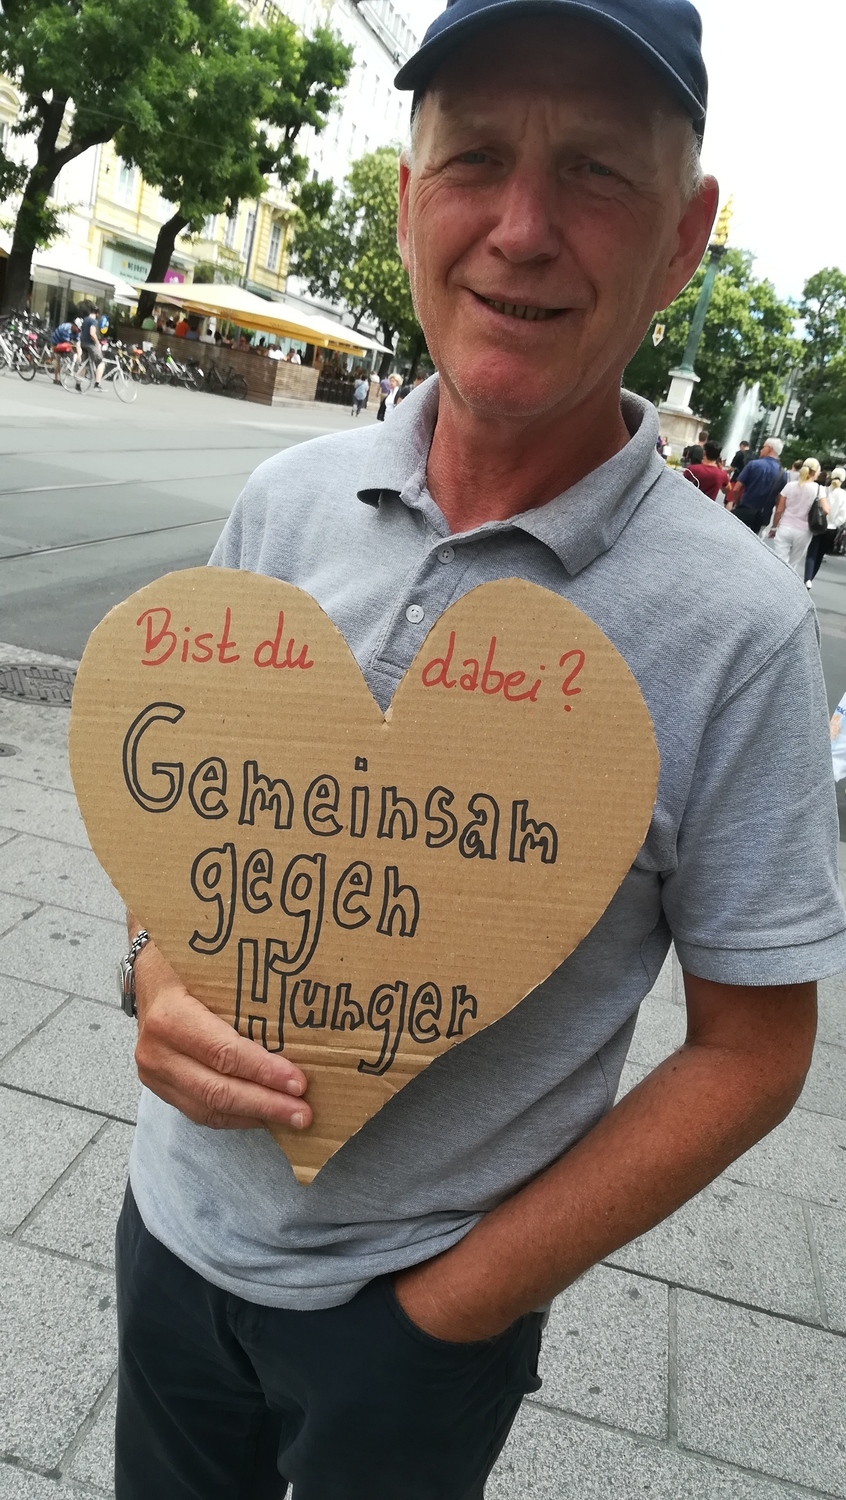 Bist du dabei?
Gemeinsam
gegen
Hunger